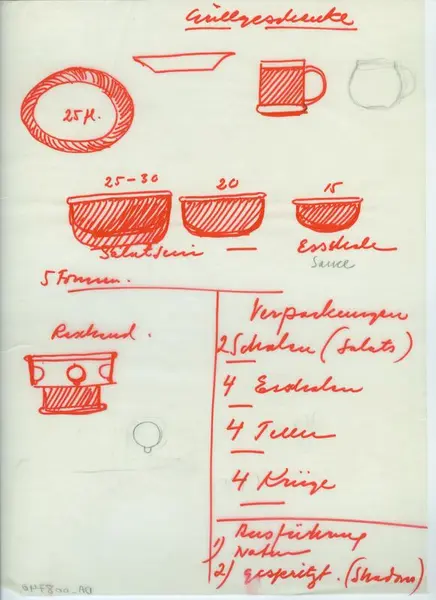 Grillgeschenke
25 fl.
25-30 20 15
Salatserie — Essschale
Sauce
5 Formen.
Verpackungen
Rexhand.
2 Schalen (Salats)
4 Esschalen
4 Teller
4 Krüge
Ausführung
1) Natur
2) gespritzt. (Shadow)